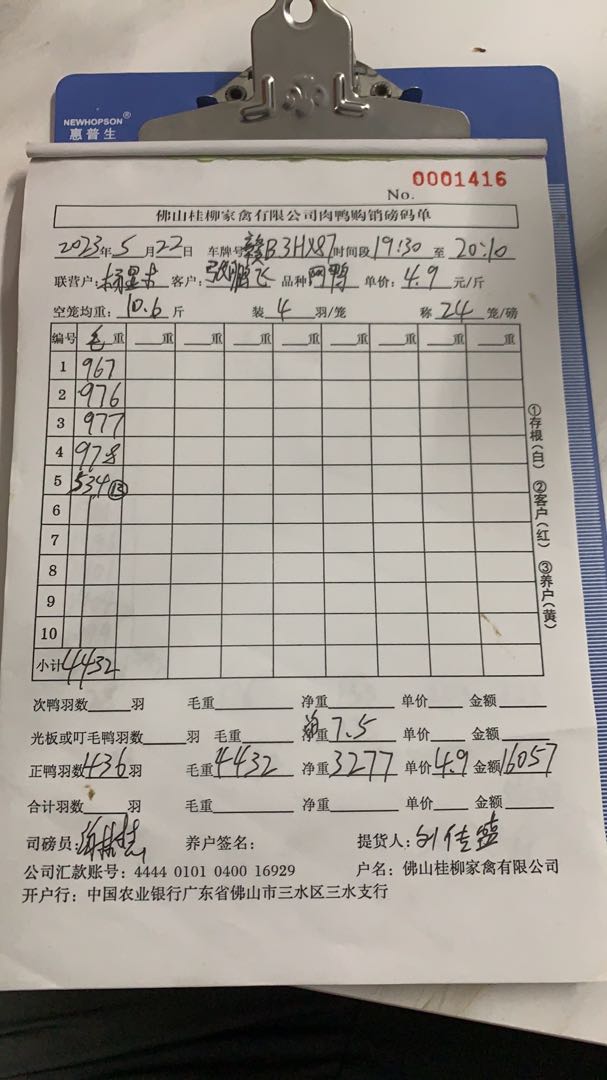 NEWHOPSON®
惠普生
No. 0001416
佛山桂柳家禽有限公司肉鸭购销磅码单
2023年5月22日 车牌号赣B3HX87时间段19:30至20:10
联营户: 客户:张鹏飞 品种 鸭 单价:4.9元/斤
空笼均重:10.6斤 装4羽/笼 称24笼/磅
编号 毛重 重 重 重 重 重 重 重
1 967
2 976
3 977
4 978
5 534 ⑬
6
7
8
9
10
小计 4432
①存根(白) ②客户(红) ③养户(黄)
次鸭羽数 羽 毛重 净重 单价 金额
光板或叮毛鸭羽数 羽 毛重 净重 7.5 单价 金额
正鸭羽数436羽 毛重4432 净重3277 单价4.9 金额16057
合计羽数 羽 毛重 净重 单价 金额
司磅员: 养户签名: 提货人:刘佳
公司汇款账号:4444 0101 0400 16929 户名:佛山桂柳家禽有限公司
开户行:中国农业银行广东省佛山市三水区三水支行